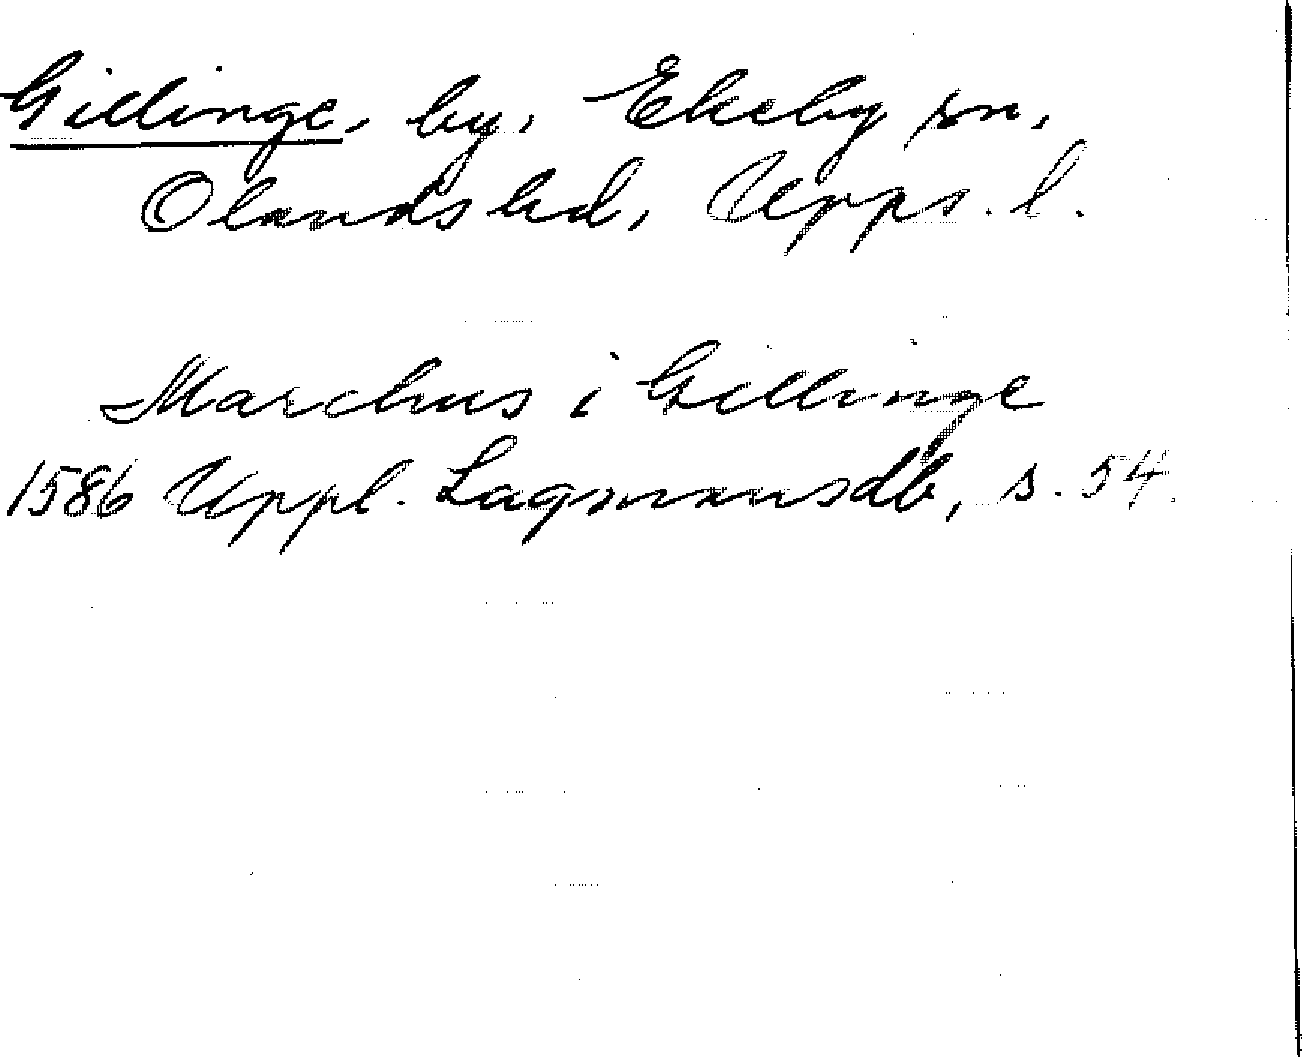 Gillinge, by, Ekeby sn,
Olands hd, Upps. l.
Marchus i Gillinge
1586 Uppl. Lagmansdb, s. 54.